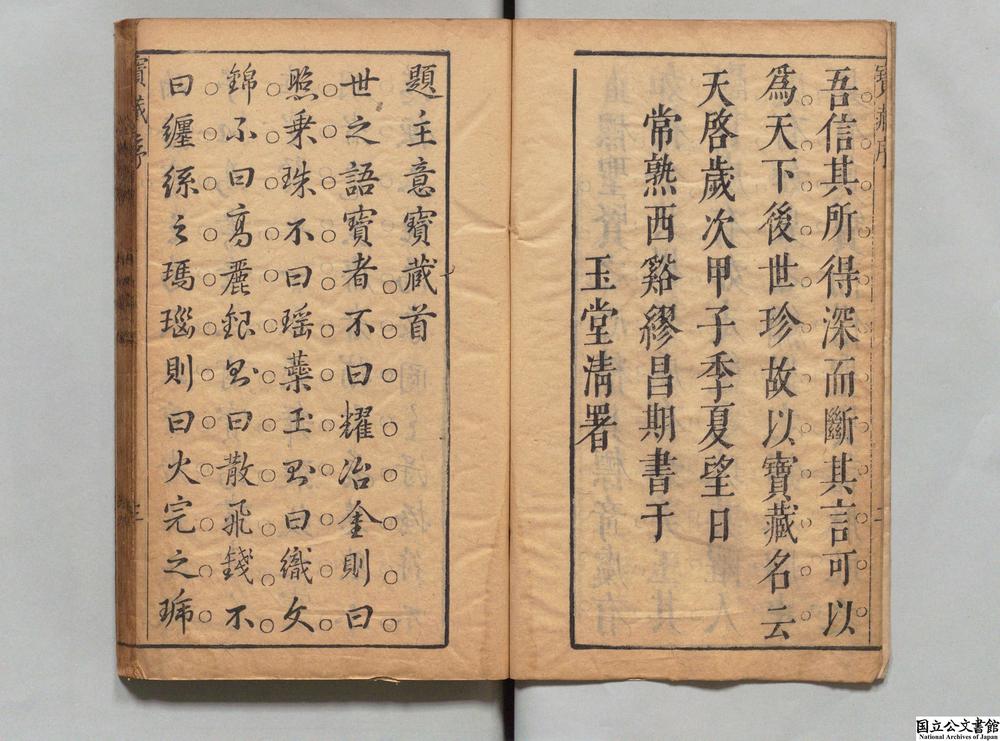 吾信其所得深而斷其言可以
爲天下後世珍故以寶藏名云
天啓歲次甲子季夏望日
常熟西谿繆昌期書于
玉堂清署
題主意寶藏首
世之語寶者不曰耀冶金則曰
照乘珠不曰瑶蘂玉則曰織文
錦不曰高麗銀則曰散飛錢不
曰纏絲之瑪瑙則曰火完之
寶藏序
国立公文書館
National Archives of Japan